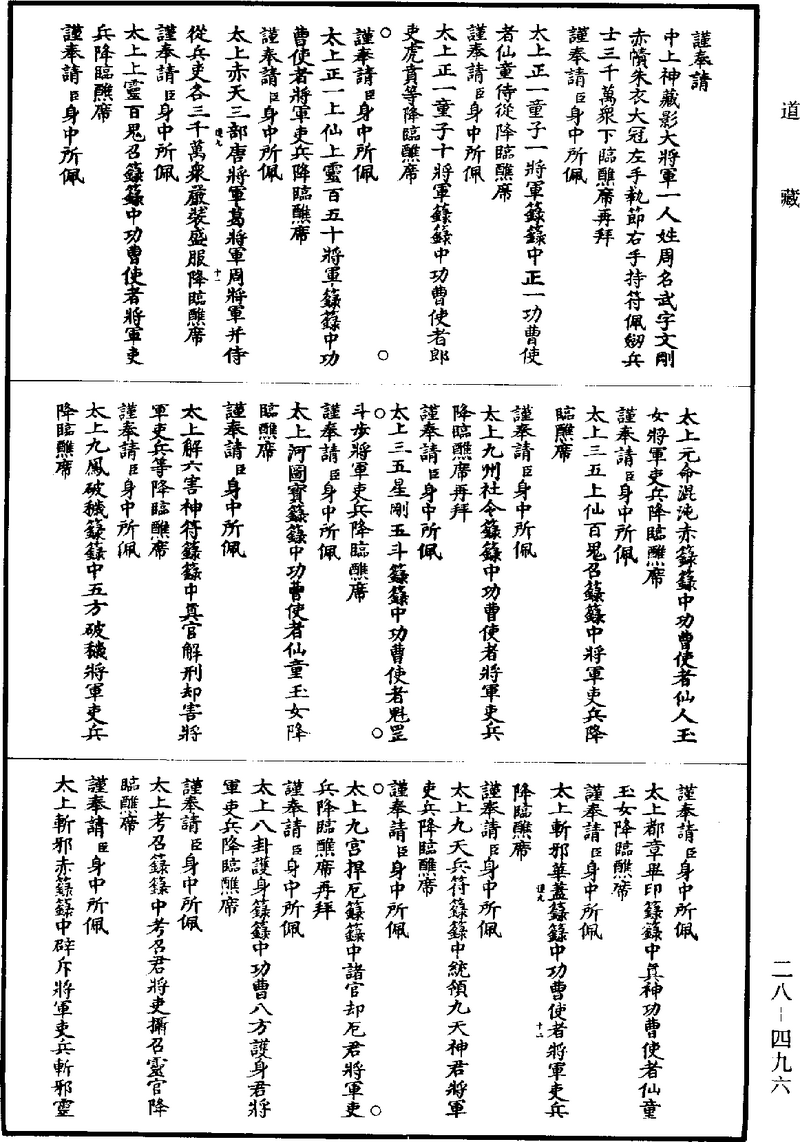 道藏
謹奉請
中上神藏影大將軍一人姓周名武字文剛
赤幘朱衣大冠左手執節右手持符佩劒兵
士三千萬衆下臨醮席再拜
謹奉請臣身中所佩
太上正一童子一將軍籙籙中正一功曹使
者仙童侍從降臨醮席
謹奉請臣身中所佩
太上正一童子十將軍籙籙中功曹使者郎
吏虎賁等降臨醮席
謹奉請臣身中所佩
太上正一上仙上靈百五十將軍籙籙中功
曹使者將軍吏兵降臨醮席
謹奉請臣身中所佩
太上赤天三部唐將軍葛將軍周將軍并侍
從兵吏各三千萬衆嚴裝盛服降臨醮席
謹奉請臣身中所佩
太上上靈百鬼召籙籙中功曹使者將軍吏
兵降臨醮席
謹奉請臣身中所佩
太上元命混沌赤籙籙中功曹使者仙人玉
女將軍吏兵降臨醮席
謹奉請臣身中所佩
太上三五上仙百鬼召籙籙中將軍吏兵降
臨醮席
謹奉請臣身中所佩
太上九州社令籙籙中功曹使者將軍吏兵
降臨醮席再拜
謹奉請臣身中所佩
太上三五星剛五斗籙籙中功曹使者魁罡
斗步將軍吏兵降臨醮席
謹奉請臣身中所佩
太上河圖寶籙籙中功曹使者仙童玉女降
臨醮席
謹奉請臣身中所佩
太上解六害神符籙籙中眞官解刑却害將
軍吏兵等降臨醮席
謹奉請臣身中所佩
太上九鳳破穢籙籙中五方破穢將軍吏兵
降臨醮席
謹奉請臣身中所佩
太上都章畢印籙籙中眞神功曹使者仙童
玉女降臨醮席
謹奉請臣身中所佩
太上斬邪華蓋籙籙中功曹使者將軍吏兵
降臨醮席
謹奉請臣身中所佩
太上九天兵符籙籙中統領九天神君將軍
吏兵降臨醮席
謹奉請臣身中所佩
太上九宮捍厄籙籙中諸官却厄君將軍吏
兵降臨醮席再拜
謹奉請臣身中所佩
太上八卦護身籙籙中功曹八方護身君將
軍吏兵降臨醮席
謹奉請臣身中所佩
太上考召籙籙中考召君將吏攝召靈官降
臨醮席
謹奉請臣身中所佩
太上斬邪赤籙籙中辟斥將軍吏兵斬邪靈
二八－四九六